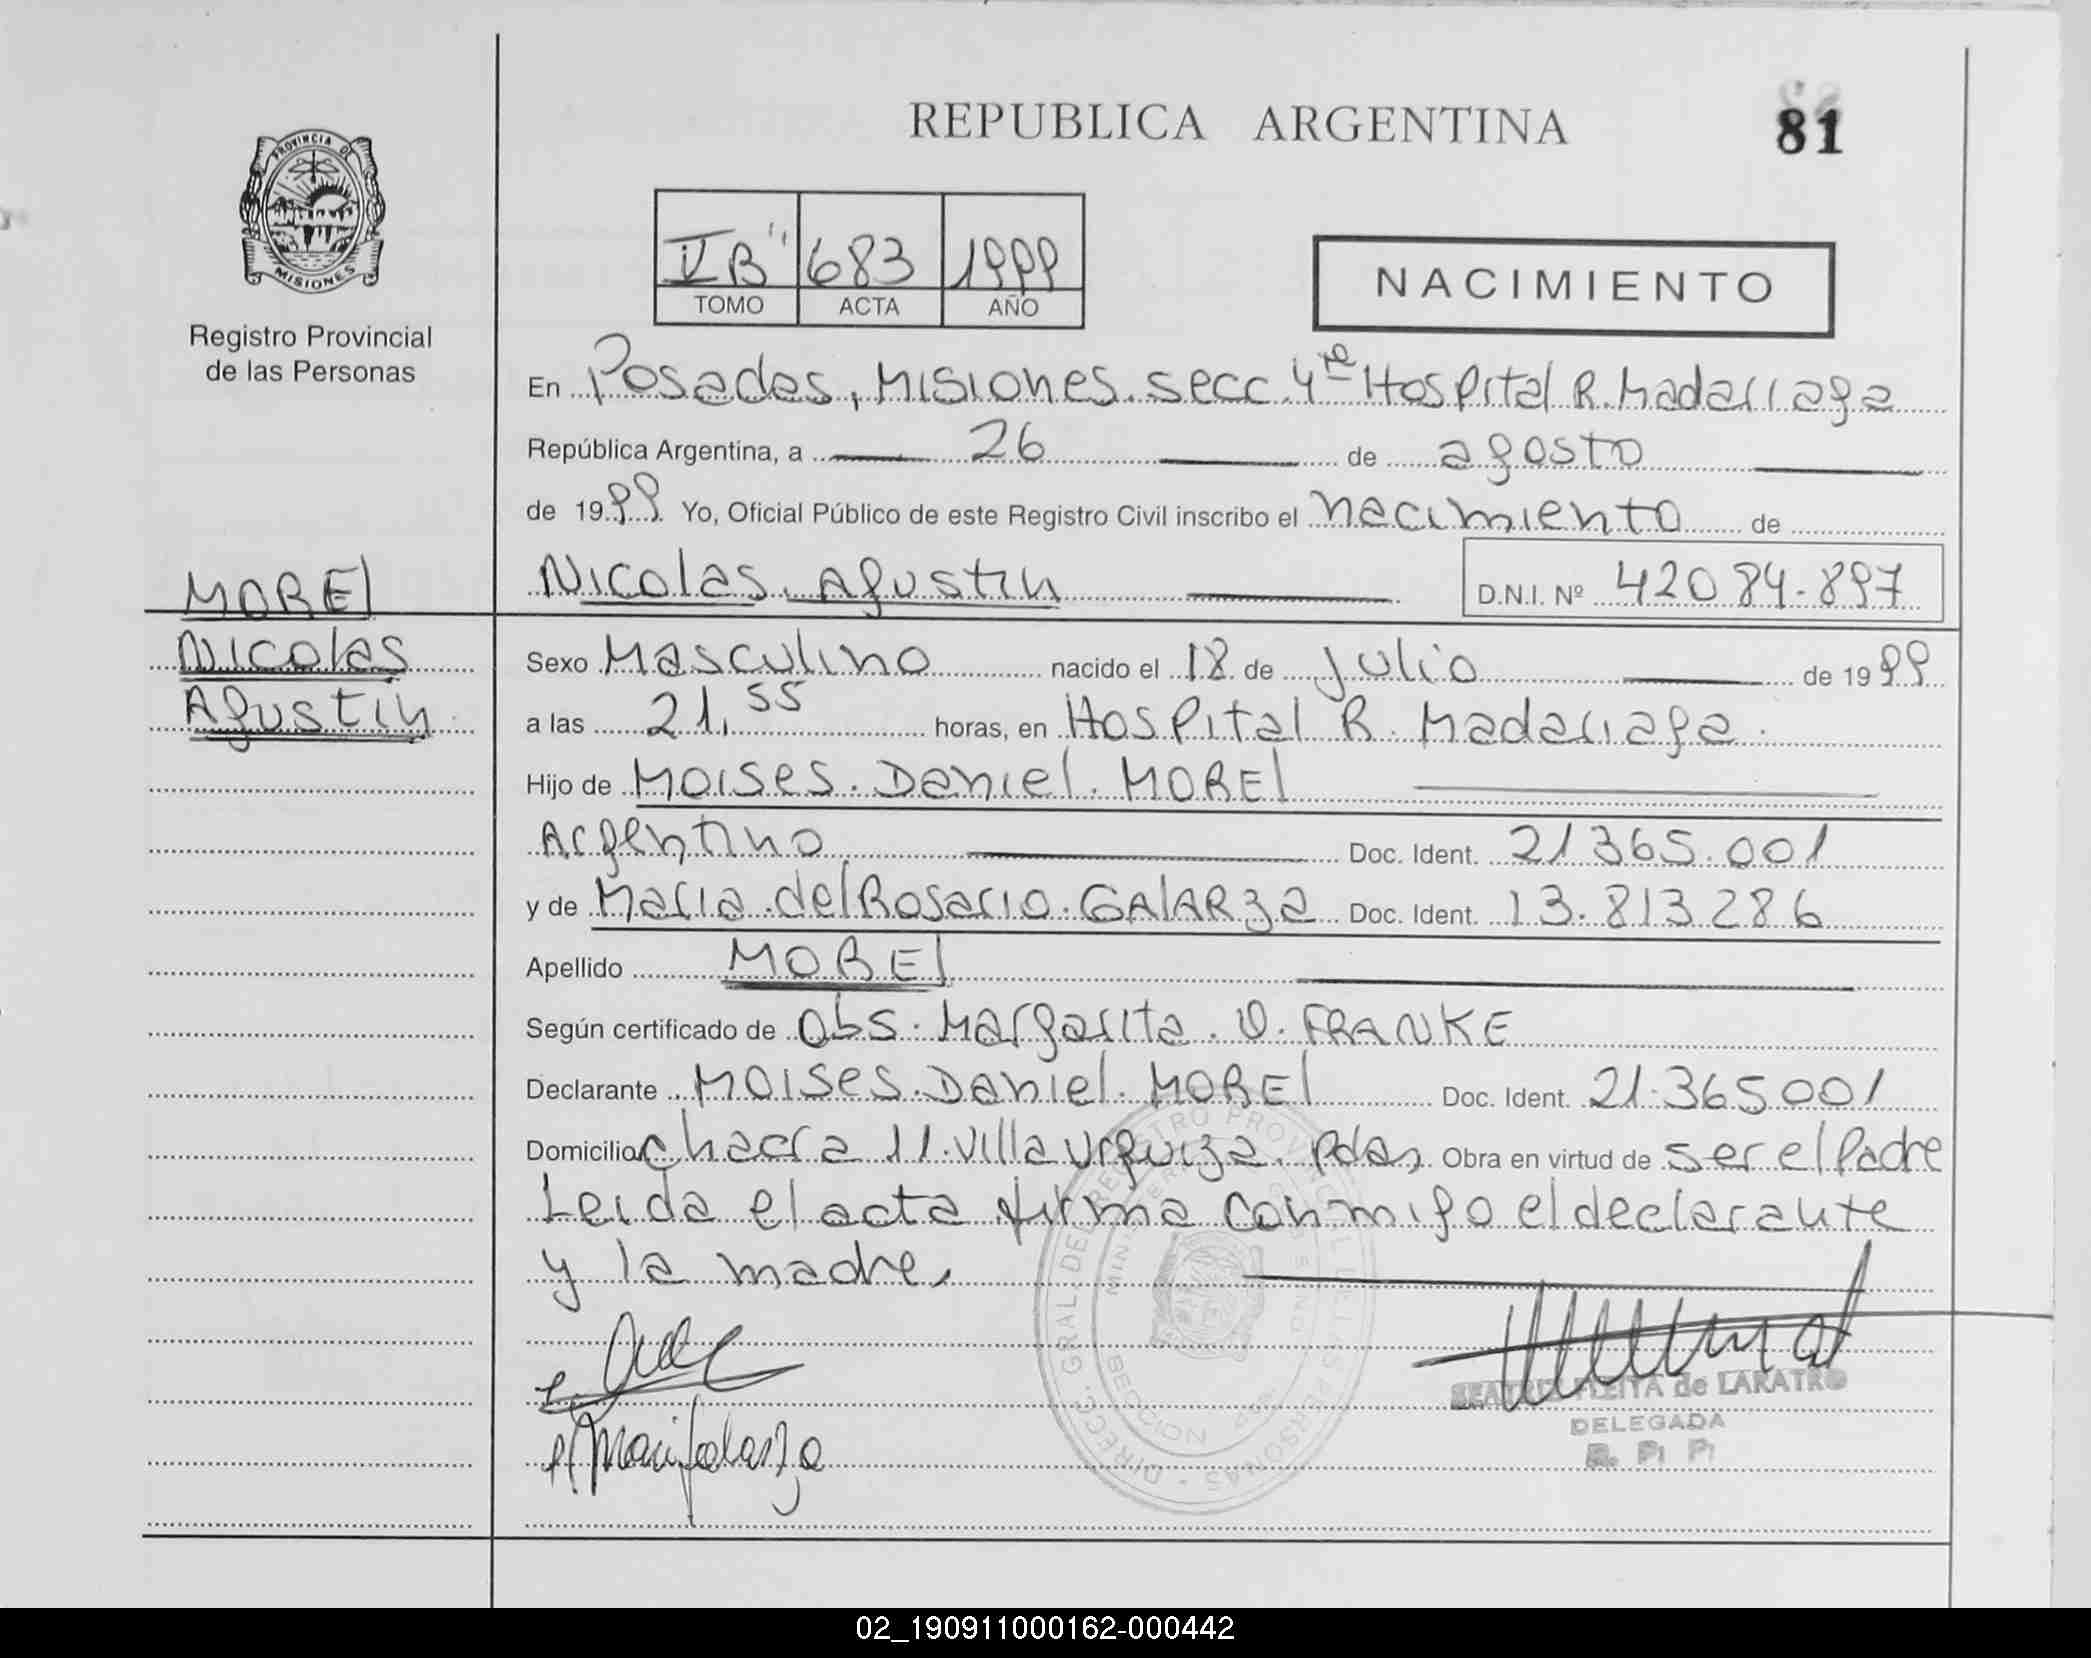 PROVINCIA DE
MISIONES
Registro Provincial
de las Personas
REPUBLICA ARGENTINA
81
V B" 683 1999
TOMO ACTA AÑO
NACIMIENTO
En Posadas, Misiones. secc. 4ta Hospital R. Madariaga
República Argentina, a 26 de agosto
de 1999 Yo, Oficial Público de este Registro Civil inscribo el nacimiento de
Nicolas Agustin D.N.I. Nº 42084.897
MOREl
Nicolas
Agustin
Sexo Masculino nacido el 18 de Julio de 1999
a las 21,55 horas, en Hospital R. Madariaga.
Hijo de Moises. Daniel. MOREl
Argentino Doc. Ident. 21365.001
y de Maria del Rosario. GAlARza Doc. Ident. 13.813286
Apellido MOREl
Según certificado de Obs. Margarita. O. FRANKE
Declarante Moises. Daniel. MOREl Doc. Ident. 21.365001
Domicilio chacra 11. Villa Urquiza. Pdas, Obra en virtud de ser el Padre
Leida el acta firma conmigo el declarante
y la madre,
DIRECC. GRAL. DEL REGISTRO PROVINCIAL DE LAS PERSONAS
BEATRIZ FLEITA de LARATRO
DELEGADA
R. P. P.
02_190911000162-000442